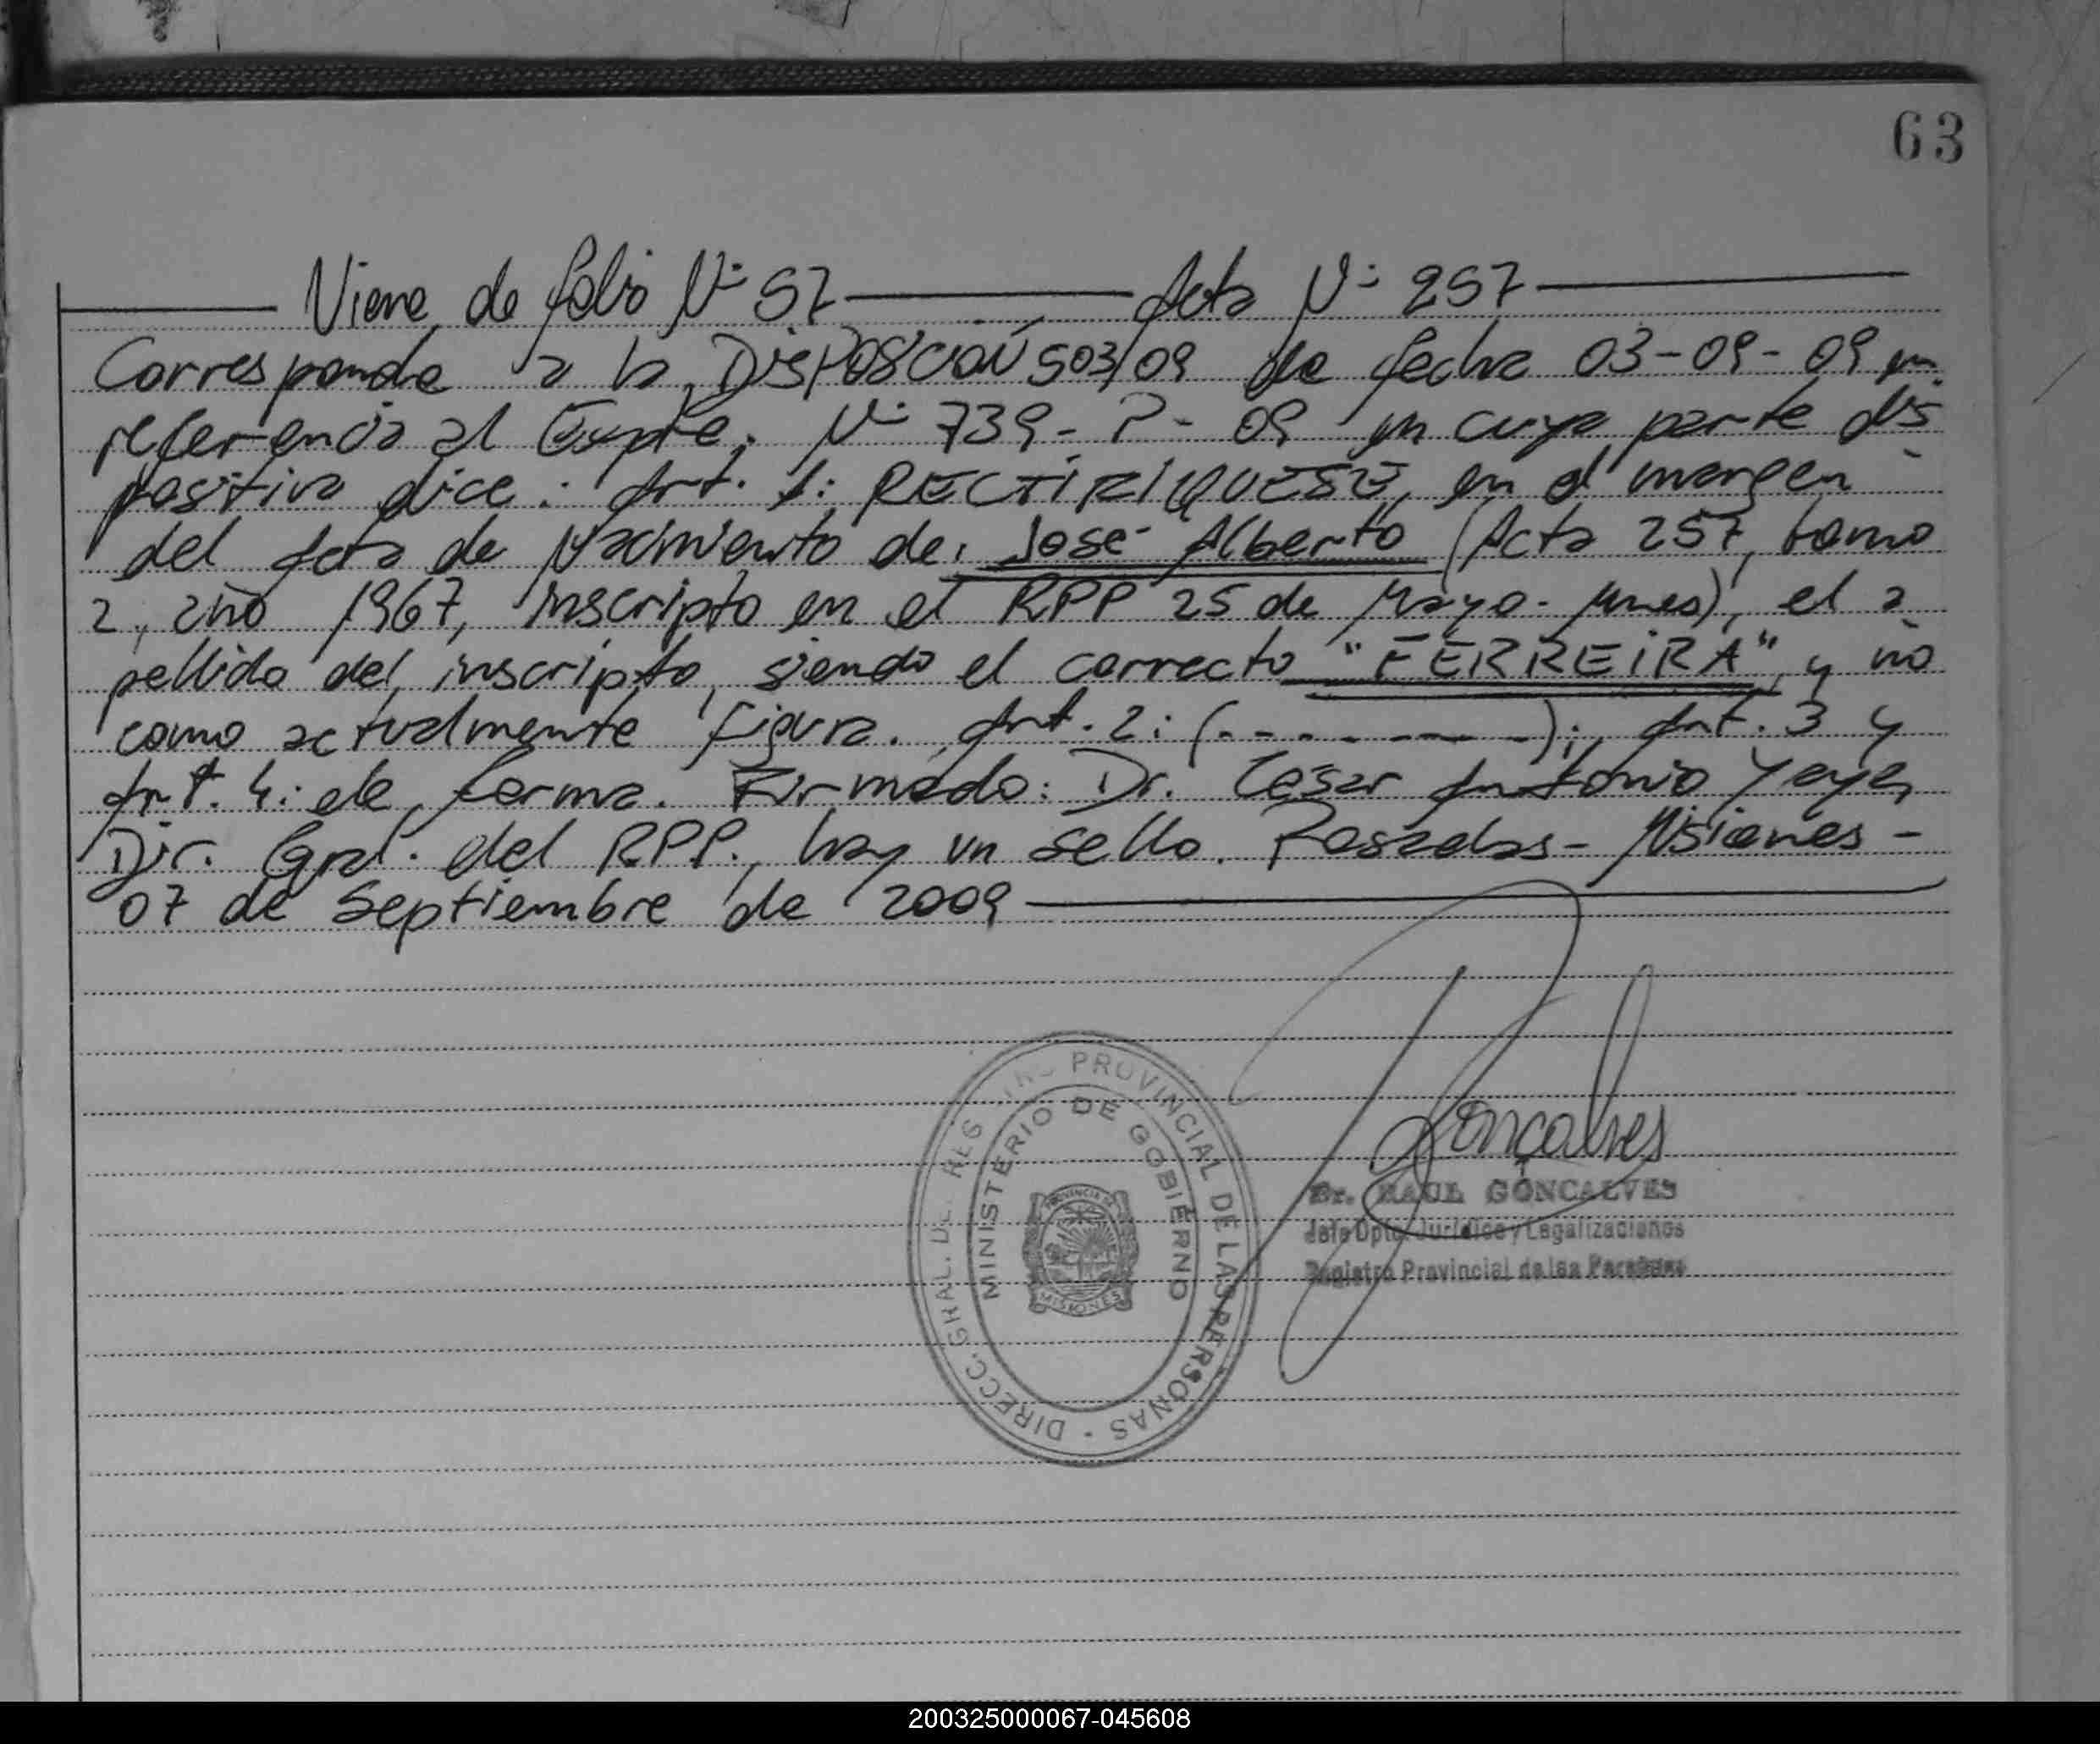 63
Viene de folio Nº 57 Acta Nº 257
Corresponde a la DISPOSICIÓN 503/09 de fecha 03-09-09 en
referencia al Expte. Nº 739-P-09 en cuya parte dis
positiva dice: Art. 1: RECTIFIQUESE, en el margen
del Acta de Nacimiento de: José Alberto (Acta 257, tomo
2, año 1967, inscripto en el RPP 25 de Mayo-Mnes), el a
pellido del inscripto, siendo el correcto "FERREIRA", y no
como actualmente figura. Art. 2: (---------); Art. 3 y
Art. 4: de forma. Firmado: Dr. César Antonio Yaya,
Dir. Gral. del RPP., hay un sello. Posadas - Misiones -
07 de Septiembre de 2009
DIRECC. GRAL. DEL REGISTRO PROVINCIAL DE LAS PERSONAS
MINISTERIO DE GOBIERNO
PROVINCIA DE
MISIONES
Gonçalves
Dr. RAUL GONÇALVES
Jefe Dpto. Jurídico y Legalizaciones
Registro Provincial de las Personas
200325000067-045608